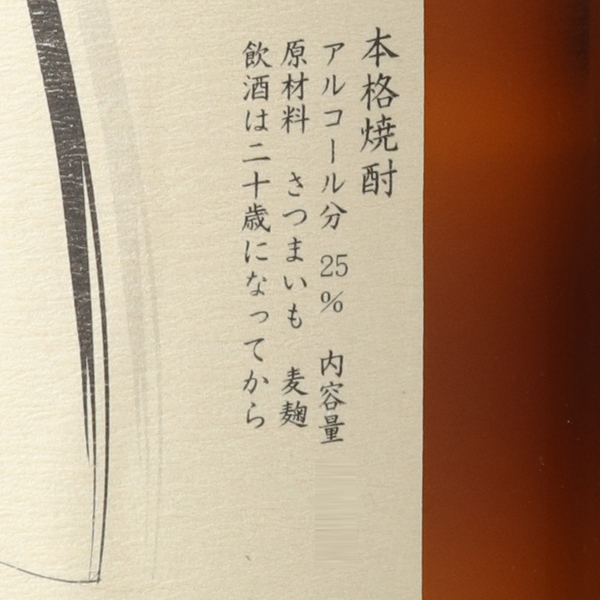 本格焼酎
アルコール分 25% 内容量
原材料 さつまいも 麦麹
飲酒は二十歳になってから